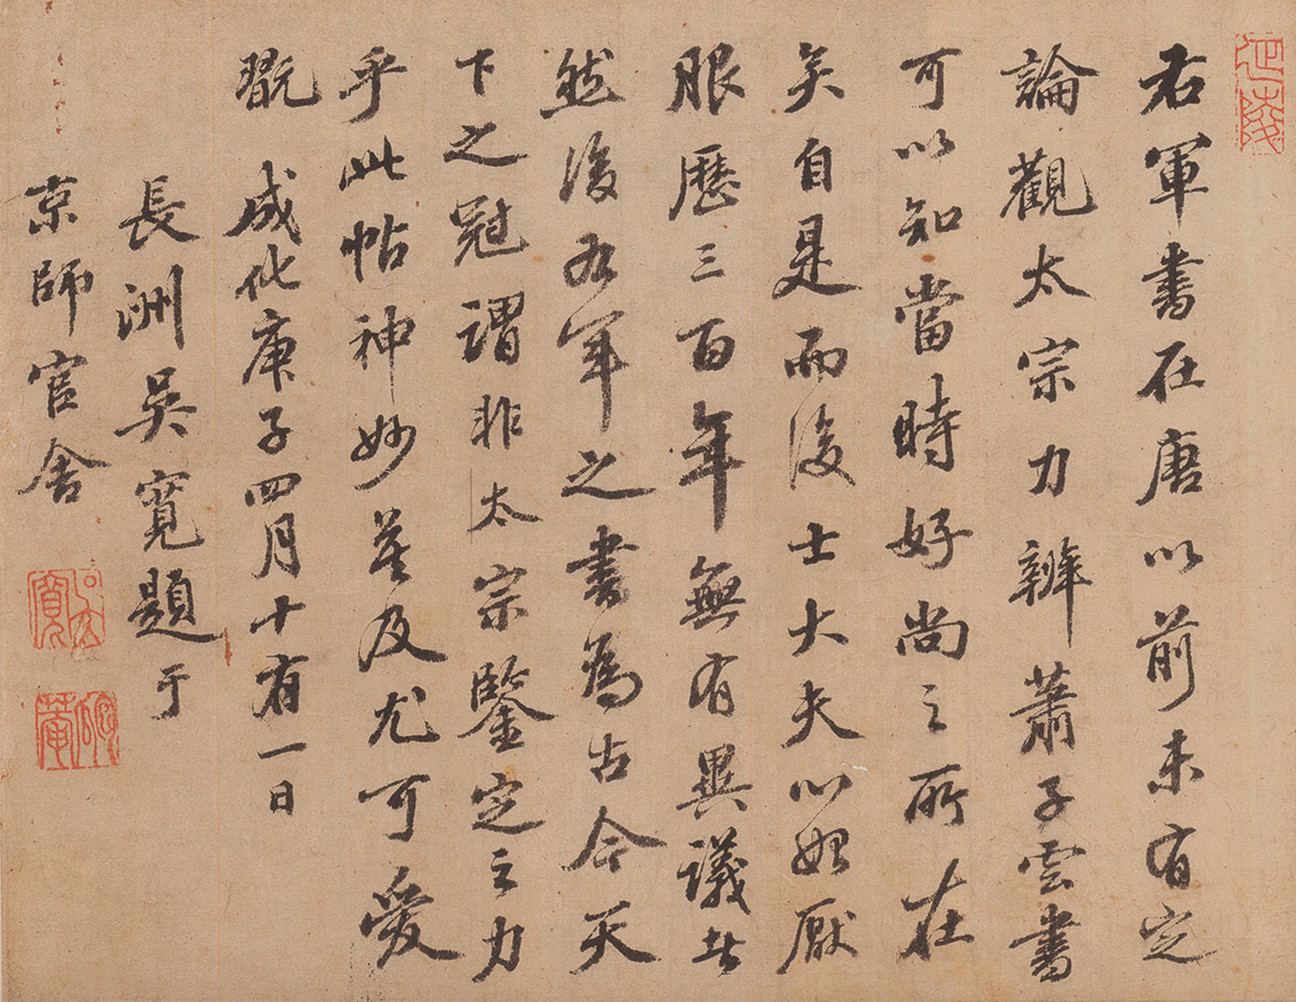 右軍書在唐以前未有定
論觀太宗力辨蕭子雲書
可以知當時好尚之所在
矣自是而後士大夫心始厭
服歷三百年無有異議者
然後右軍之書為古今天
下之冠謂非太宗鑒定之力
乎此帖神妙莫及尤可愛
翫 成化庚子四月十有一日
長洲吳寬題于
京師官舍
延陵
吳寬